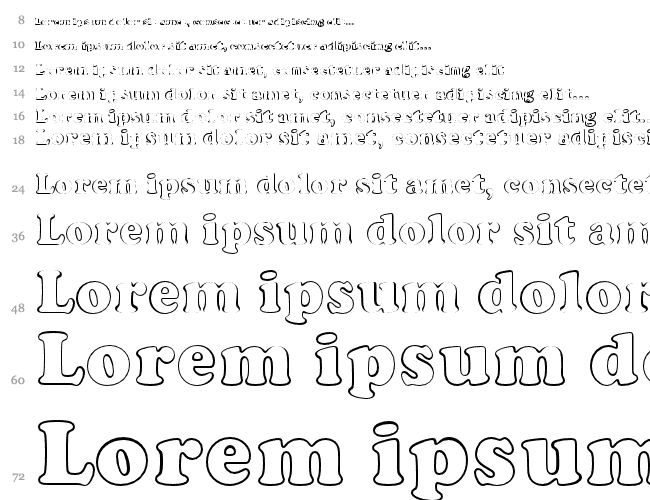 8 Lorem ipsum dolor sit amet, consectetuer adipiscing elit...
10 Lorem ipsum dolor sit amet, consectetuer adipiscing elit...
12 Lorem ipsum dolor sit amet, consectetuer adipiscing elit
14 Lorem ipsum dolor sit amet, consectetuer adipiscing elit...
16 Lorem ipsum dolor sit amet, consectetuer adipiscing elit..
18 Lorem ipsum dolor sit amet, consectetuer adipisci
24 Lorem ipsum dolor sit amet, consectet
36 Lorem ipsum dolor sit am
48 Lorem ipsum dolor
60 Lorem ipsum do
72 Lorem ipsum